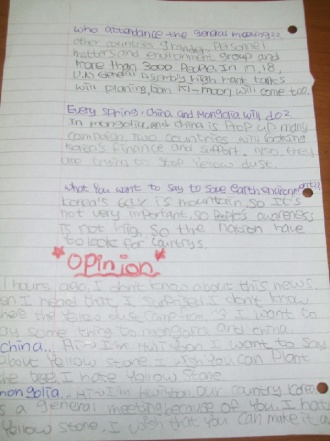 who attendance the general meeting??
other countries standard personnel
matters and environment group and
more than 3000 people in 17, 18,
U.N general Assembly high rank talks
will planing, ban ki-moon will come too.
Every spring, china and Mongolia will do?
In mongolia, and china is prop up many
campaign. Two countries will looking
Korea's Finance and support. also, they
are trying to stop Yellow dust.
what you want to say to save earth environment?
Korea's 64% is mountain, so it's
not very important. so people's awareness
is not hig. so the nation have
to look for countrys.
Opinion
hours ago, I don't know about this news.
I heled that, I surprised I don't know
here the Yellow dust came from. I want to
ay some thing to mongolia and china.
china... Hi~ I'm I want to say
about Yellow stone I wish you can plant
the tree I hate Yellow Stone.
mongolia. Hi~ I'm Our country Korea
is a general meeting because of you. I hate
Yellow stone. I wish that you can make it